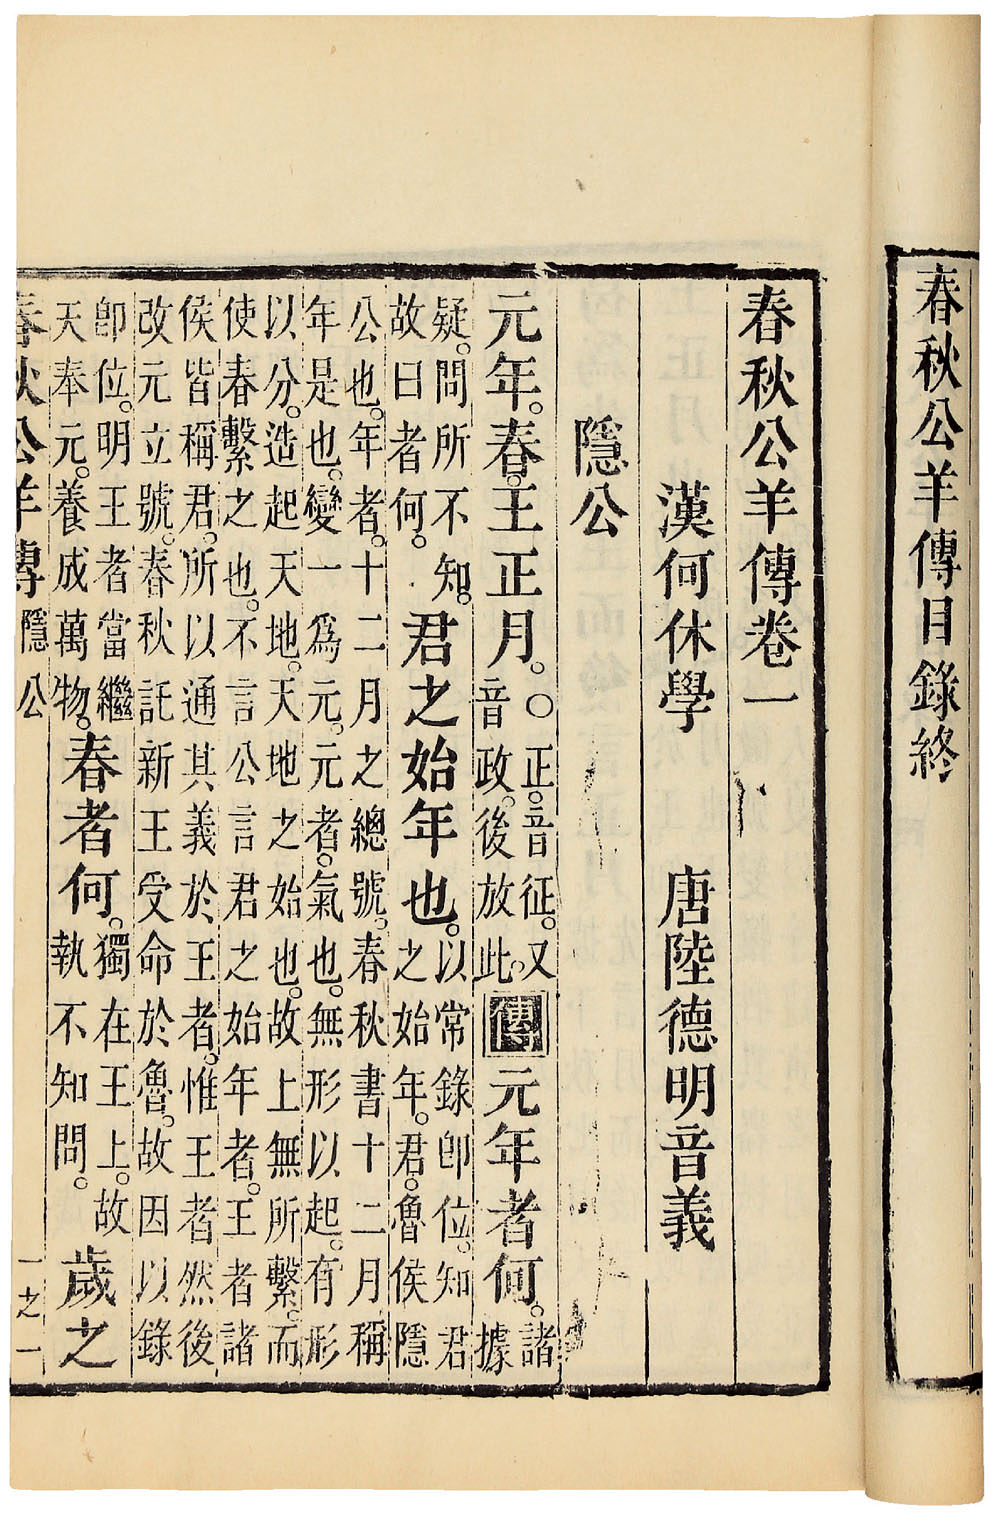 春秋公羊傳目錄終
春秋公羊傳卷一
漢何休學　唐陸德明音義
隱公
元年。春。王正月。○正。音征。又音政。後放此。傳元年者何。諸據
疑。問所不知。故曰者何。君之始年也。以常錄卽位。知君之始年。君。魯侯隱
公也。年者。十二月之總號。春秋書十二月稱年是也。變一爲元。元者。氣也。無形以起。有形
以分。造起天地。天地之始也。故上無所繫。而使春繫之也。不言公言君之始年者。王者諸
侯皆稱君。所以通其義於王者。惟王者然後改元立號。春秋託新王受命於魯。故因以錄
卽位。明王者當繼天奉元。養成萬物。春者何。獨在王上。故執不知問。歲之
春秋公羊傳　隱公　一之一